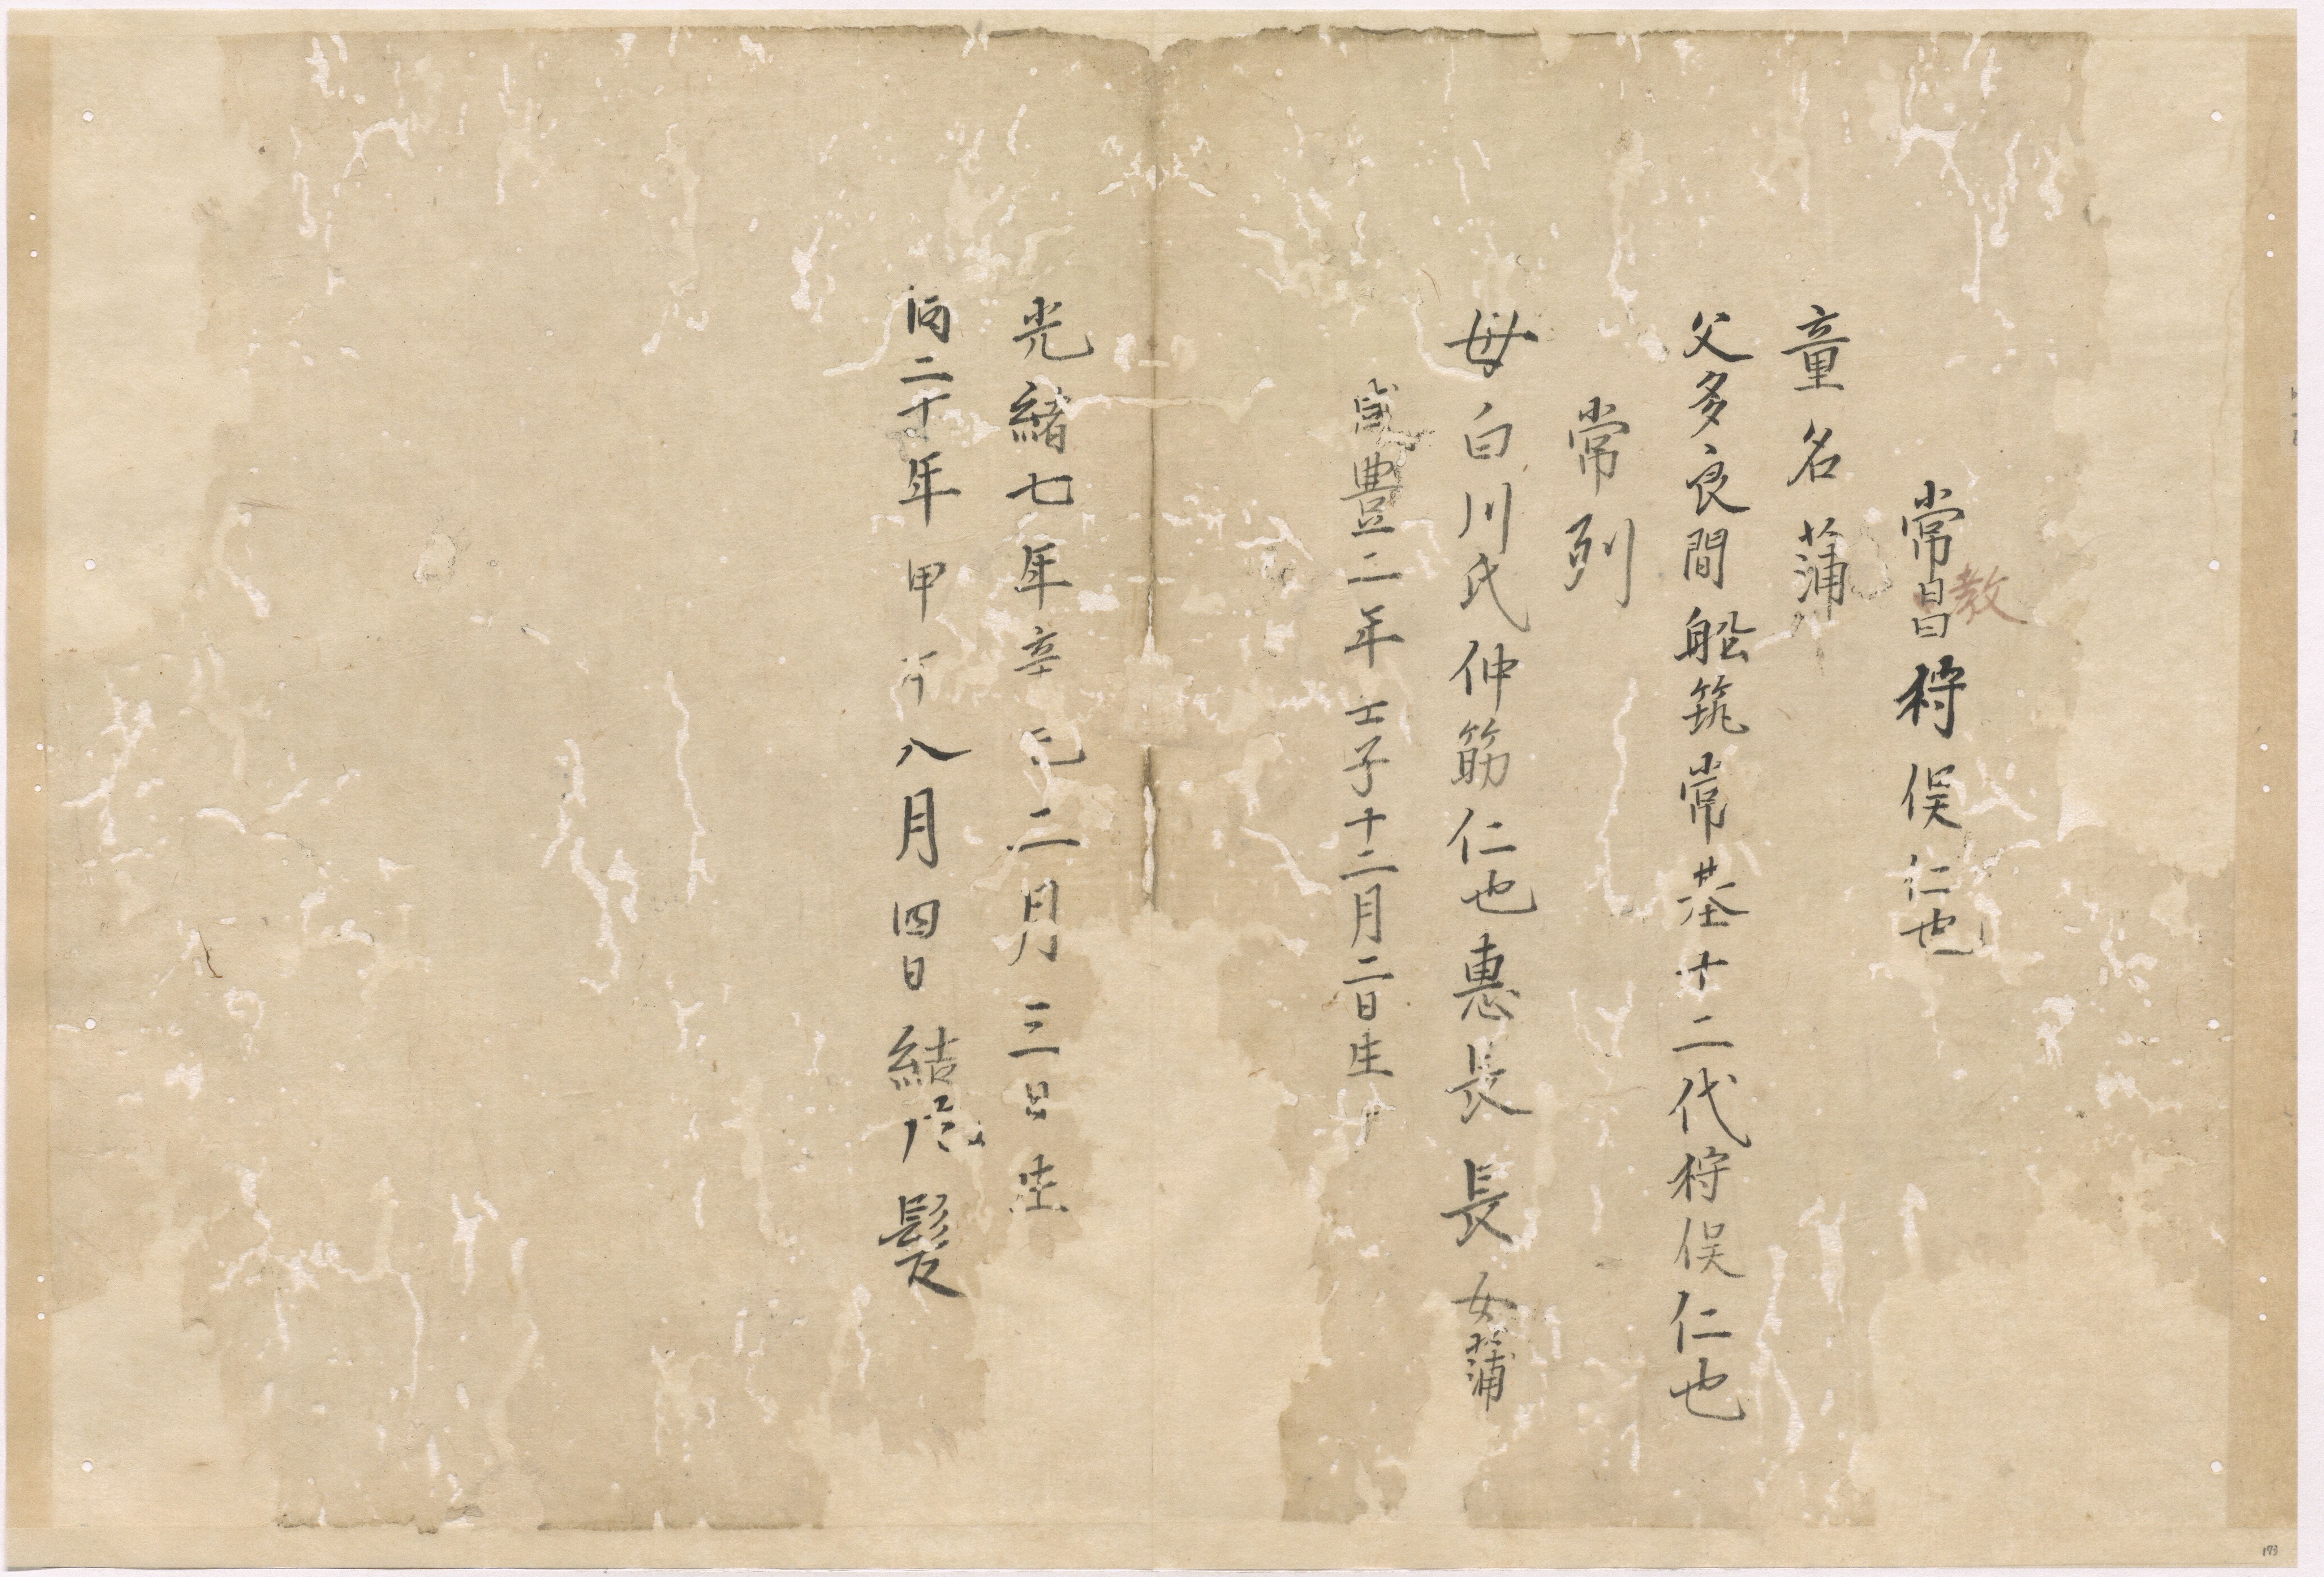 常昌教狩俣仁也
童名蒲
父多良間船筑常基十二代狩俣仁也
常列
母白川氏仲筋仁也惠長長女蒲
咸豊二年壬子十二月二日生
光緒七年辛巳二月三日生
同二十年甲午八月四日結髪
173